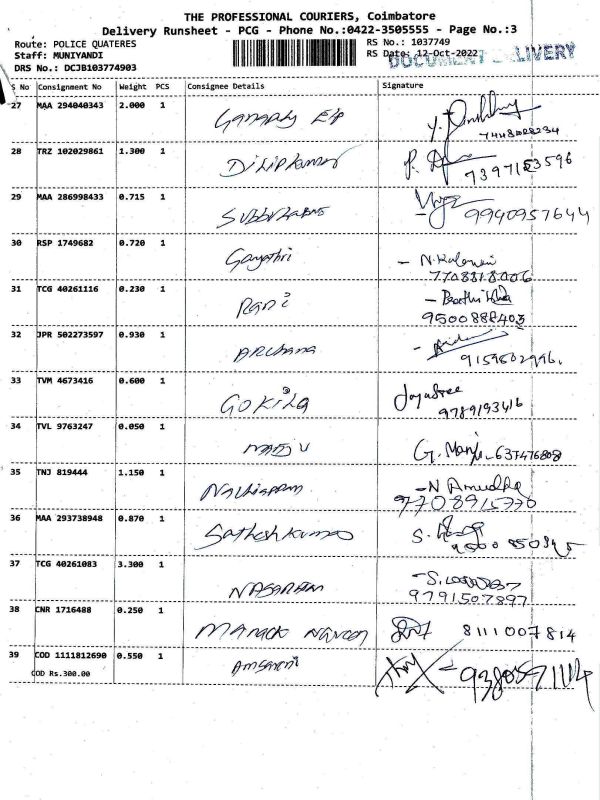 THE PROFESSIONAL COURIERS, Coimbatore
Delivery Runsheet - PCG - Phone No.:0422-3505555 - Page No.:3
Route: POLICE QUATERES
RS No.: 1037749
Staff: MUNIYANDI
RS Date: 12-Oct-2022
DRS No.: DCJB103774903
DOCUMENT DELIVERY
S No Consignment No Weight PCS Consignee Details Signature
27 MAA 294040343 2.000 1
7448028234
28 TRZ 102029861 1.300 1 Dilipkumar
7397153596
29 MAA 286998433 0.715 1
9940957644
30 RSP 1749682 0.720 1 Gayathri
7708818006
31 TCG 40261116 0.230 1 Rani
9500888403
32 JPR 502273597 0.930 1 Archana
33 TVM 4673416 0.600 1 GOKila Jayasree
9789193416
34 TVL 9763247 0.050 1 G. Manju 637476808
35 TNJ 819444 1.150 1 N Amudha
7708915770
36 MAA 293738948 0.870 1 Sathesh kumar
37 TCG 40261083 3.300 1
9791507897
38 CNR 1716488 0.250 1 8111007814
39 COD 1111812690 0.550 1
COD Rs.300.00